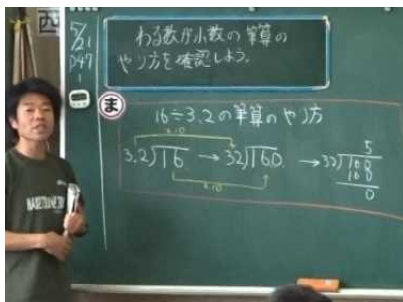 5/21
P47
1
わる数が小数の筆算の
やり方を確認しよう。
ま
16÷3.2の筆算のやり方
×10
3.2)16 → 32)160 → 32)160
5
160
0
×10